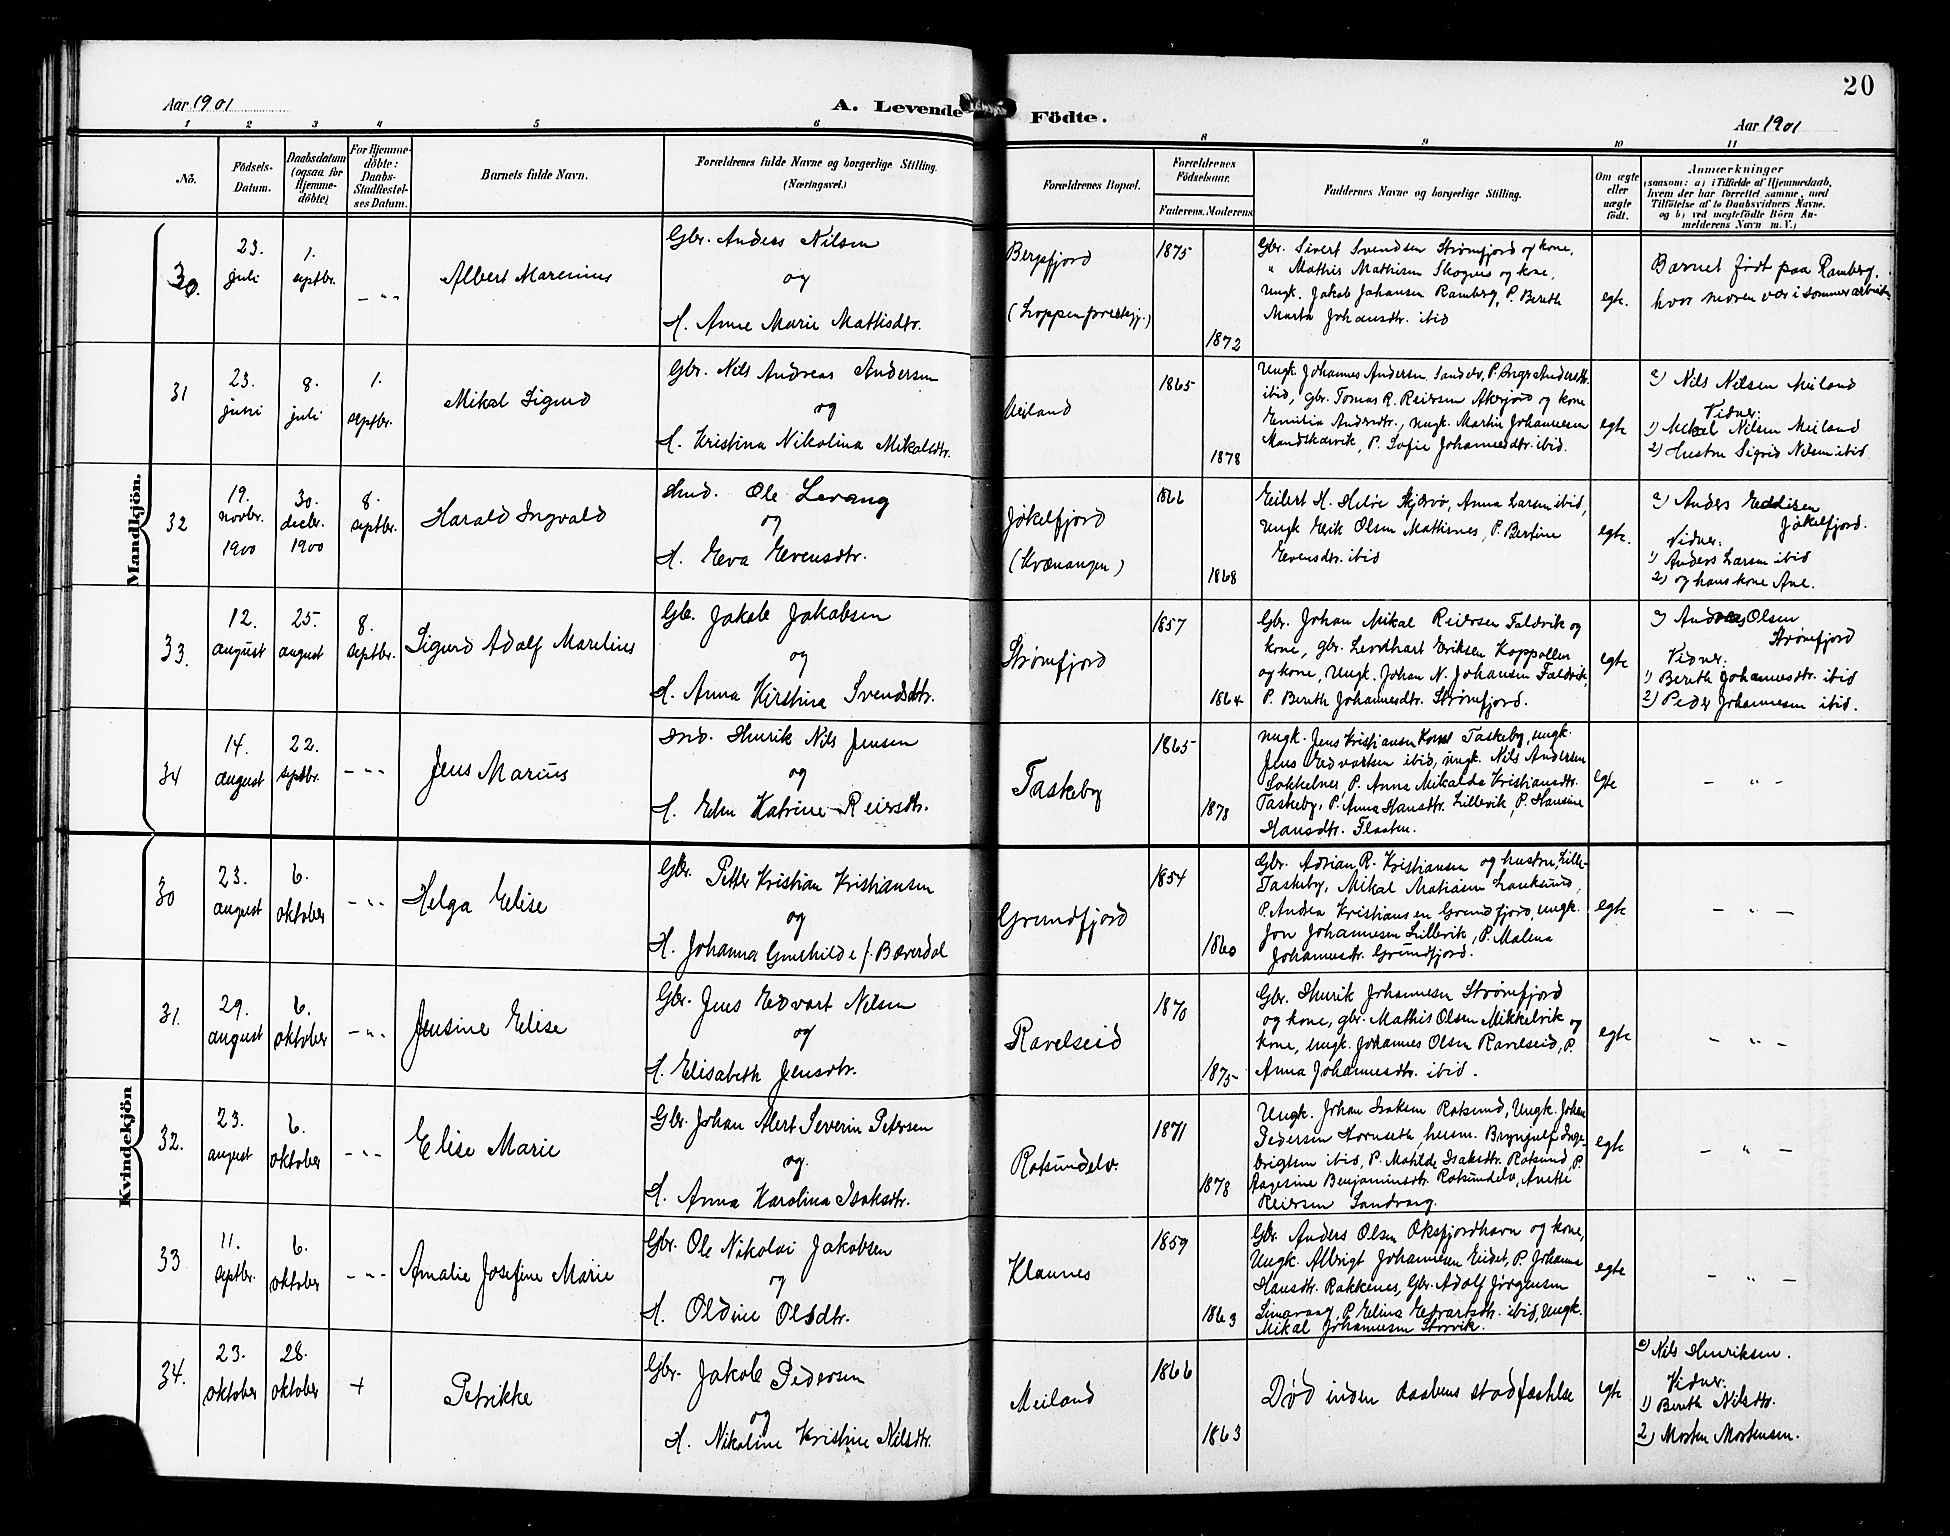 Aar 1901
A. Levende
Födte.
Aar 1901
20
1 2 3 4 5 6 8 9 10 11
No.
Födsels-
Datum.
Daabsdatum
(ogsaa for
Hjemme-
döbte)
For Hjemme-
döbte:
Daabs-
Stadfæstel-
ses Datum.
Barnets fulde Navn.
Forældrenes fulde Navne og borgerlige Stilling.
(Næringsvei.)
Forældrenes Bopæl.
Forældrenes
Födselsaar.
Faderens. Moderens
Faddernes Navne og borgerlige Stilling.
Om ægte
eller
uægte
födt.
Anmærkninger
(saasom: a) i Tilfælde af Hjemmedaab,
hvem der har forrettet samme, med
Tilföielse af to Daabsvidners Navne.
og b) ved uægtefödte Börn An-
melderens Navn m. V.)
Mandkjön.
30.
23.
juli
1.
septbr.
- " -
Albert Marenius
Gbr. Anders Nilsen
og
H. Anne Marie Mattisdtr.
Bergsfjord
(Loppen prestegj.)
1875
1872
Gbr. Sivert Svendsen Strømfjord og kone,
" Mathis Mathisen Skognes og kone,
Ungk. Jakob Johansen Ramberg, P. Bereth
Marta Johansdtr. ibid
egte.
Barnet født paa Ramberg.
hvor moren var i sommerarbeide
31
23.
juni
8.
juli
1.
septbr.
Mikal Sigurd
Gbr. Nils Andreas Andersen
og
H. Kristina Nikolina Mikalsdtr.
Meiland
1865
1878
Ungk. Johannes Andersen Sandør, P. Inger Andersdtr.
ibid, Gbr. Tomas R. Reiersen Akerjord og kone
Emilia Andersdtr., ungk. Martin Johannesen
Mandskarvik, P. Sofie Johannesdtr. ibid.
egte
a) Nils Nilsen Meiland
Vidner:
1) Mikal Nilsen Meiland
2) Hustru Sigrid Nilsen ibid.
32
19.
novbr.
1900
30.
decbr.
1900
8.
septbr.
Harald Ingvald
Ind. Ole Levang
og
H. Eva Evensdtr.
Jøkelfjord
(Kvænangen)
1866
1868
Eilert H. Heløe Skjærvø, Anna Larsen ibid,
Ungk Erik Olsen Mattisnes, P. Bertine
Evensdtr. ibid
egte.
a) Anders Eddisen
Jøkelfjord.
Vidner:
1) Anders Larsen ibid
2) og hans kone Ane.
33.
12.
august
25.
august
8.
septbr.
Sigurd Adolf Marelius
Gbr. Jakob Jakobsen
og
H. Anna Kirstina Svendsdtr.
Strømfjord
1857
1864
Gbr. Johan Mikal Reiersen Taldvik og
kone, gbr. Leonhart Eriksen Koppollen
og kone, Ungk. Johan N. Johansen Taldvik,
P. Bereth Johannesdtr. Strømfjord.
egte
a) Andreas Olsen
Strømfjord
Vidner:
1) Bereth Johannesdtr. ibid
2) Peder Johannesen ibid.
34
14.
august
22.
septbr.
- " -
Jens Marius
Ind. Henrik Nils Jensen
og
H. Elen Katrine Reiersdtr.
Taskeby
1865
1870
ungk. Jens Kristiansen Taskeby, ungk.
Jens Edvartsen ibid, ungk. Nils Andersen
Sokkelnes P. Anna Mikalda Kristiansdtr.
Taskeby, P. Anna Hansdtr. Lillevik, P. Hansine
Hansdtr. Flaaten.
egte
- " -
Kvindekjön
30
23.
august
6.
oktober
- " -
Helga Elise
Gbr. Petter Kristian Kristiansen
og
H. Johanna Gunhilde f. Bæverdal
Grundfjord
1854
1860
Gbr. Adrian R. Kristiansen og hustru, Lille-
Taskeby, Mikal Matiasen Lauksund,
P. Andrea Kristiansen Grundfjord, ungk.
Jon Johannesen Lillevik, P. Malena
Johannesdtr. Grundfjord.
egte
- " -
31.
29.
august
6.
oktober
- " -
Jensine Elise
Gbr. Jens Edvart Nilsen
og
H. Elisabeth Jensdtr.
Ravelseid
1870
1875
Gbr. Henrik Johannesen Strømfjord
og kone, gbr. Mathis Olsen Mikkelvik og
kone, ungk. Johannes Olsen Ravelseid, P.
Anna Johannesdtr. ibid.
egte
- " -
32.
23.
august
6.
oktober
- " -
Elise Marie
Gbr. Johan Alert Severin Petersen
og
H. Anna Karolina Isaksdtr.
Rotsundelv.
1871
1878
Ungk. Johan Isaksen Rotsund, Ungk. Johan
Pedersen Hornseth, husm. Brynjulf Inge-
brigtsen ibid, P. Matilde Isaksdtr. Rotsund, P.
Aagesine Benjaminsdtr. Rotsundelv, Anette
Reiersen Sandvaag.
egte
- " -
33
11.
septbr.
6.
oktober
- " -
Amalie Josefine Marie
Gbr. Ole Nikolai Jakobsen
og
H. Oldine Olsdtr.
Klaunes
1859
1863
Gbr. Anders Olsen Oksfjordhavn og kone,
Ungk. Albrigt Johannesen Eidet, P. Johanna
Hansdtr. Rakkenes, Gbr. Adolf Jørgensen
P. Elina Edvartsdtr. ibid, Ungk.
Mikal Johannesen Storvik.
egte
- " -
34.
23.
oktober
28.
oktober
+
Petrikke
Gbr. Jakob Pedersen
og
H. Nikoline Kristine Nilsdtr.
Meiland
1866
1863
Død inden daabens stadfæstelse
egte
a) Nils Henriksen.
Vidner:
1) Bereth Nilsdtr.
2) Morten Mortensen.